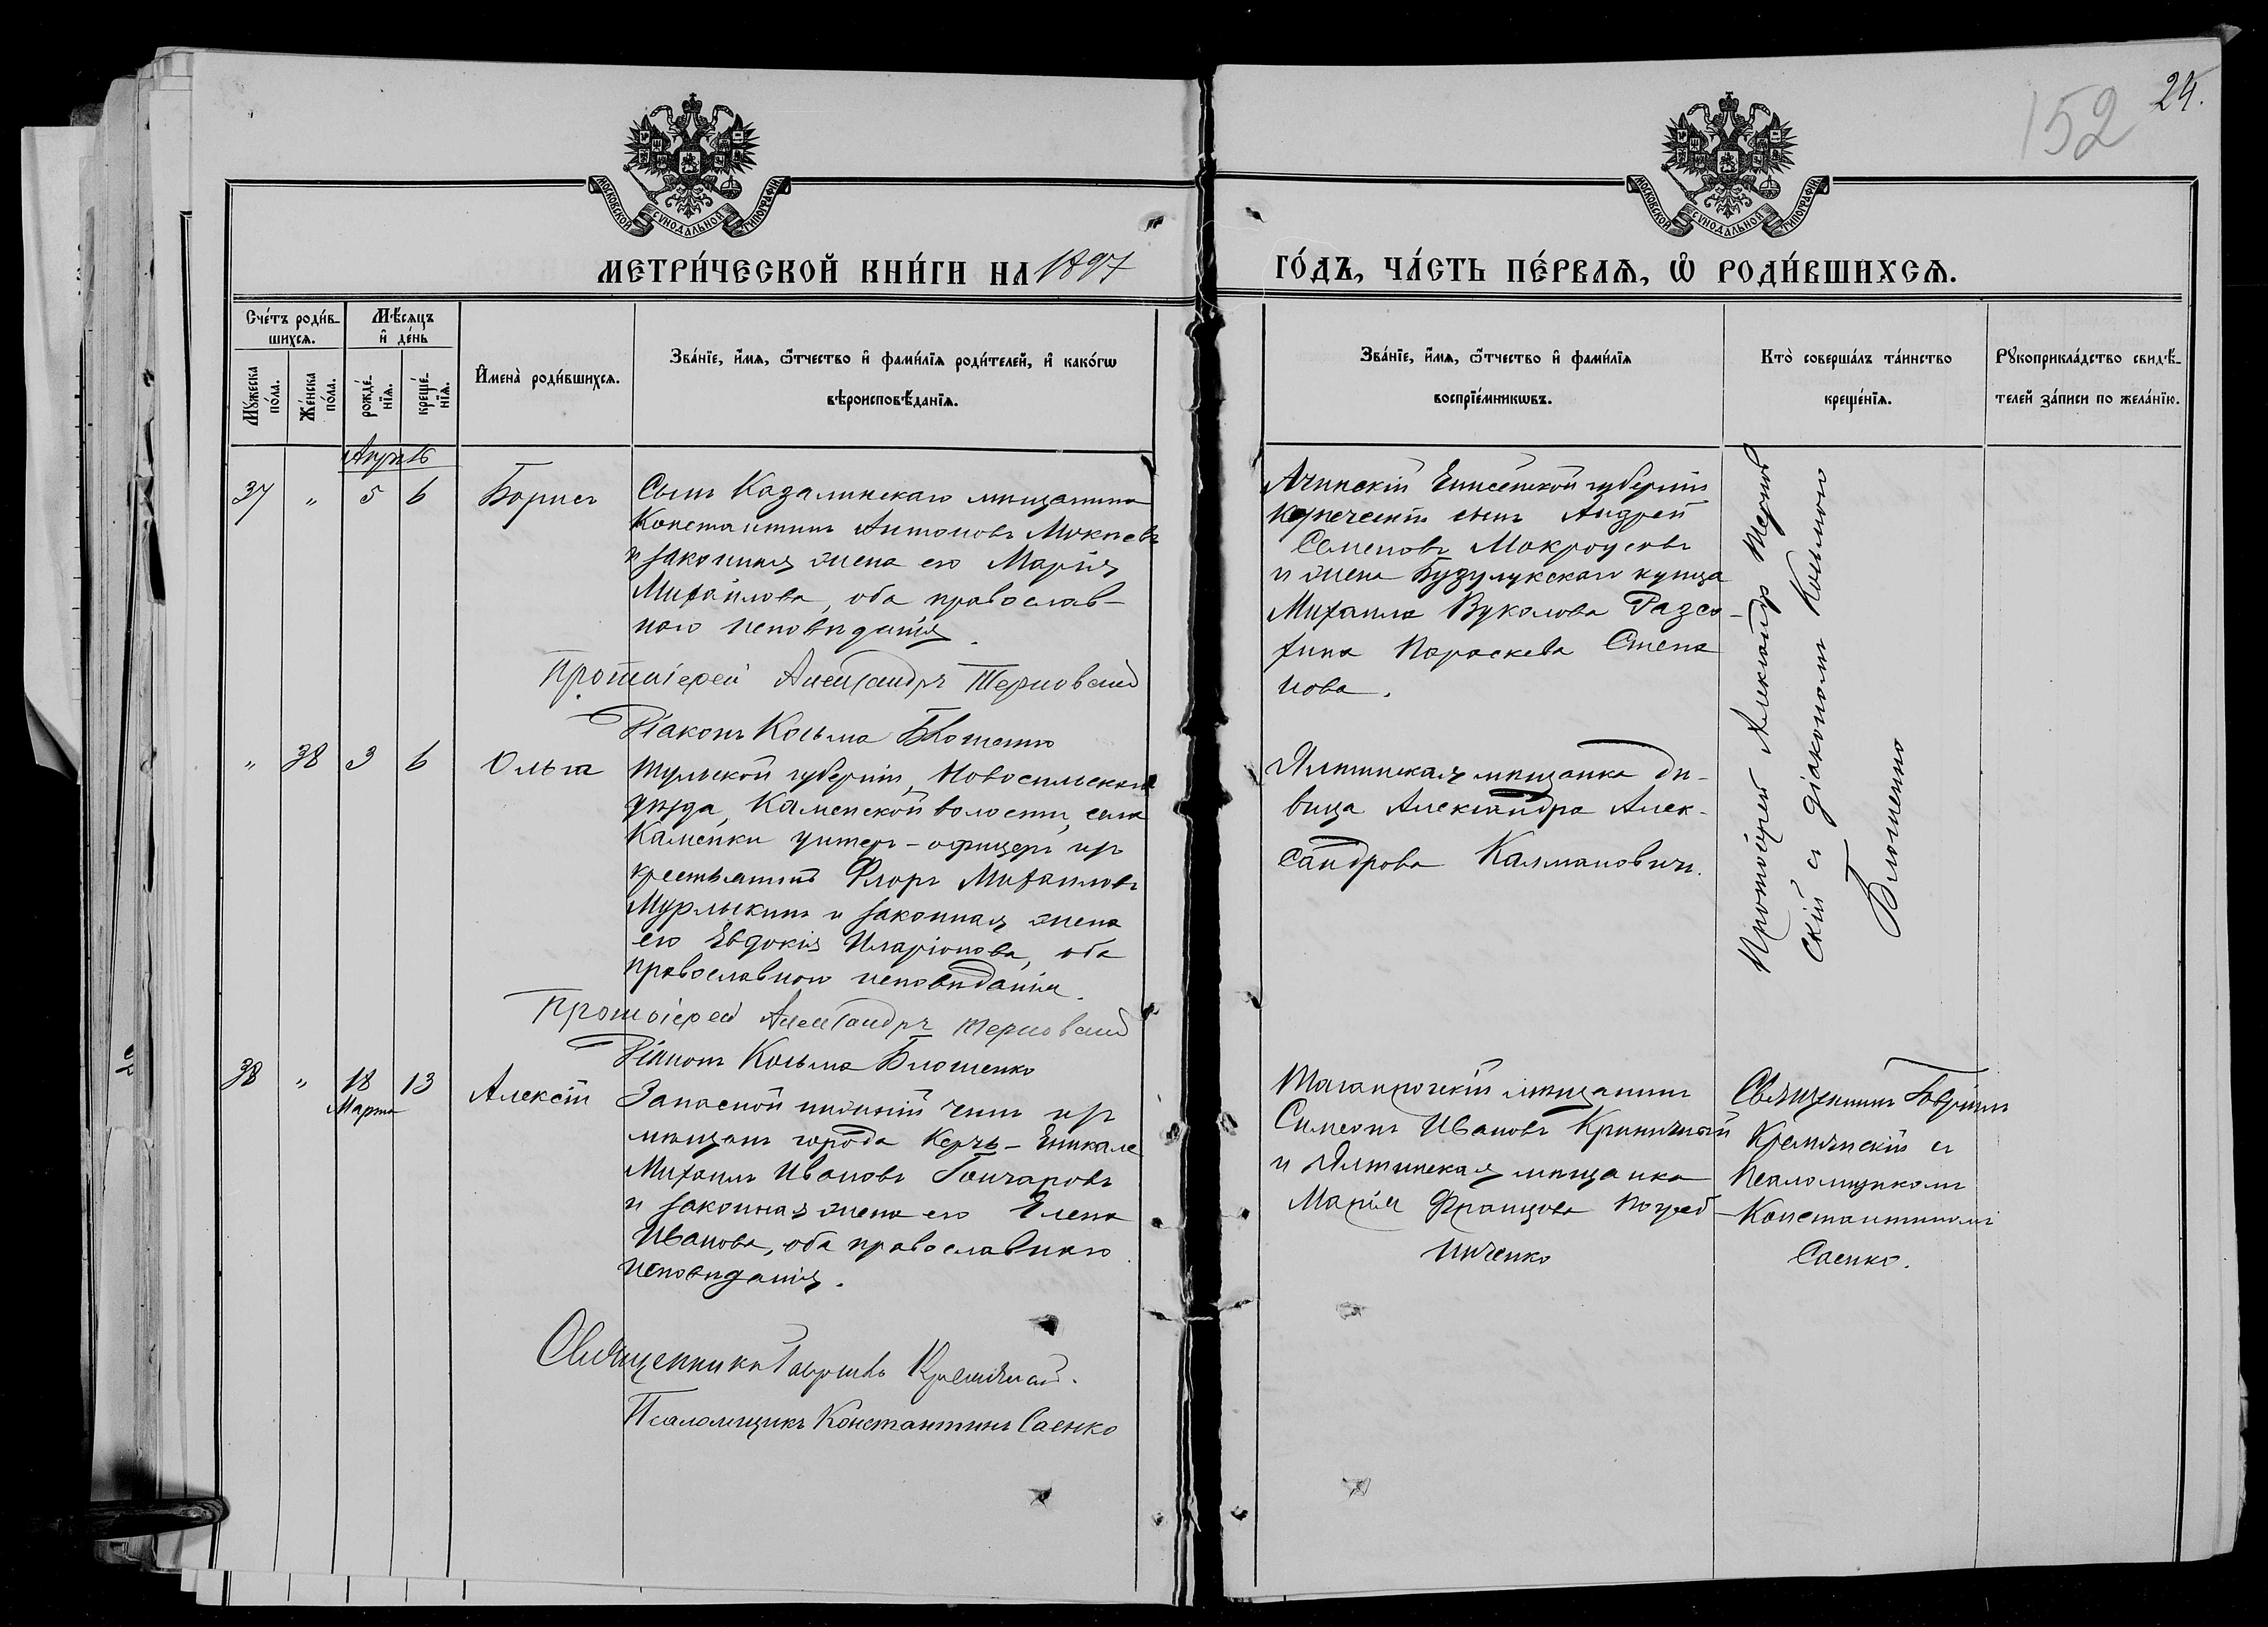 152
24.
МОСКОВСКОЙ СѴНОДАЛЬНОЙ ТИПОГРАФІИ
МОСКОВСКОЙ СѴНОДАЛЬНОЙ ТИПОГРАФІИ
МЕТРИ́ЧЕСКОЙ КНИ́ГИ НА 1897
ГО́ДЪ, ЧА́СТЬ ПЕ́РВАѦ, Ѽ РОДИ́ВШИХСѦ.
Сче́тъ роди́в-
шихсѧ.
Мꙋ́жеска
по́ла.
Же́нска
по́ла.
Мѣ́сѧцъ
и҆ де́нь
рожде́-
нїѧ.
креще́-
нїѧ.
И҆мена̀ роди́вшихсѧ.
Зва́нїе, и҆́мѧ, ѻ҆́тчество и҆ фами́лїѧ роди́телей, и҆ како́гѡ
вѣроисповѣ́данїѧ.
Зва́нїе, и҆́мѧ, ѻ҆́тчество и҆ фами́лїѧ
воспрїе́мникѡвъ.
Кто̀ соверша́лъ та́инство
креще́нїѧ.
Рꙋкоприкла́дство свидѣ́-
телей за́писи по жела́нїю.
Апрѣль
37 " 5 6 Борисъ
Сынъ Казалинскаго мѣщанина
Константинъ Антоновъ
и законная жена его Марія
Михайлова, оба православ-
наго исповѣданія.
Протоіерей Александръ Терновскій
Діаконъ Косьма Блошенко
Ачинскій Енисейской губерніи
купеческій сынъ Андрей
Семеновъ Мокроусовъ
и жена Бузулукскаго купца
Михаила Вуколова Разсо-
хина Параскева Степа
нова.
Протоіерей Александр Тернов
скій съ діакономъ Косьмою
Блошенко
" 38 3 6 Ольга
Тульской губерніи, Новосильскаго
уѣзда, Каменской волости, села
Каменки унтеръ-офицеръ изъ
крестьянъ Флоръ Михаиловъ
Мурлыкинъ и законная жена
его Евдокія Иларіонова, оба
православнаго исповѣданія.
Протоіерей Александръ Терновскій
Діаконъ Косьма Блошенко
Ялтинская мѣщанка дѣ-
вица Александра Алек-
сандрова Калмановичъ.
38 " 18 13 Алексій
Марта
Запасной нижній чинъ изъ
мѣщанъ города Керчь-Еникале
Михаилъ Ивановъ Гончаровъ
и законная жена его Елена
Иванова, оба православнаго
исповѣданія.
Священникъ Гавріилъ Кремянскій.
Псаломщикъ Константинъ Саенко
Таганрогскій мѣщанинъ
Симеонъ Ивановъ Криничный
и Ялтинская мѣщанка
Марія Францова Погреб-
ниченко
Священникъ Гавріилъ
Кремянскій съ
псаломщикомъ
Константиномъ
Саенко.